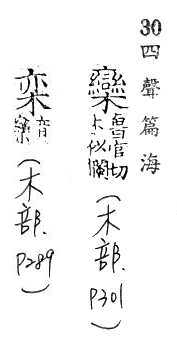 30四聲篇海
欒魯官切
木似欄
(木部.
P301)
栾音
欒
(木部.
P289)